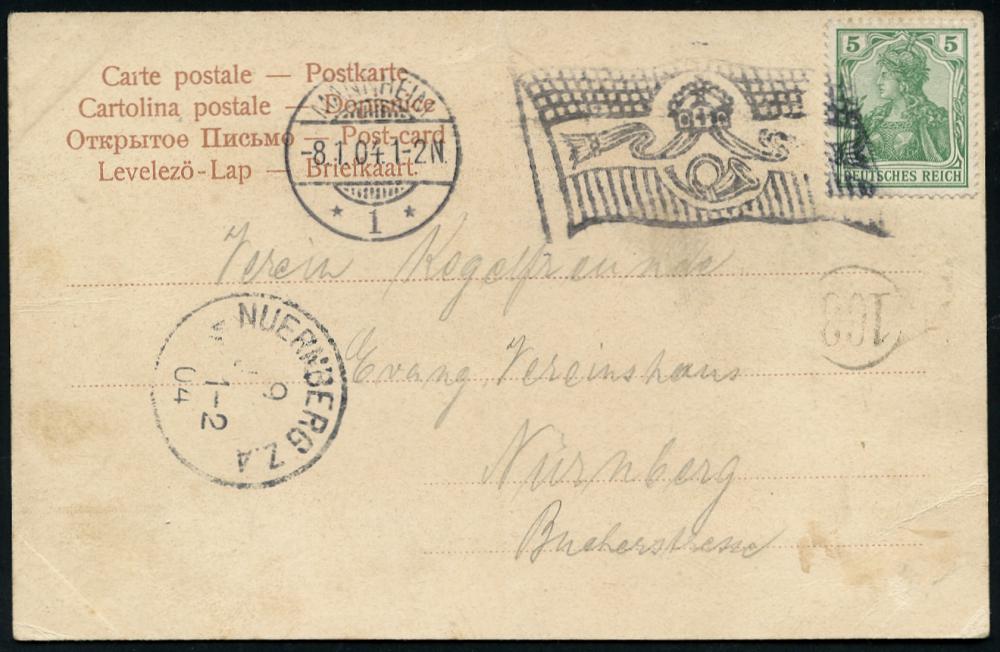 Carte postale — Postkarte
Cartolina postale — Dopisnice
Открытое Письмо — Post-card
Levelezö-Lap — Briefkaart.
MANNHEIM
-8.1.04.1-2N.
* 1 *
5 5
DEUTSCHES REICH
Verein Kogelfreunde
100
NUERNBERG Z.A
9
1-2
04
Evang. Vereinshaus
Nürnberg
Bucherstrasse